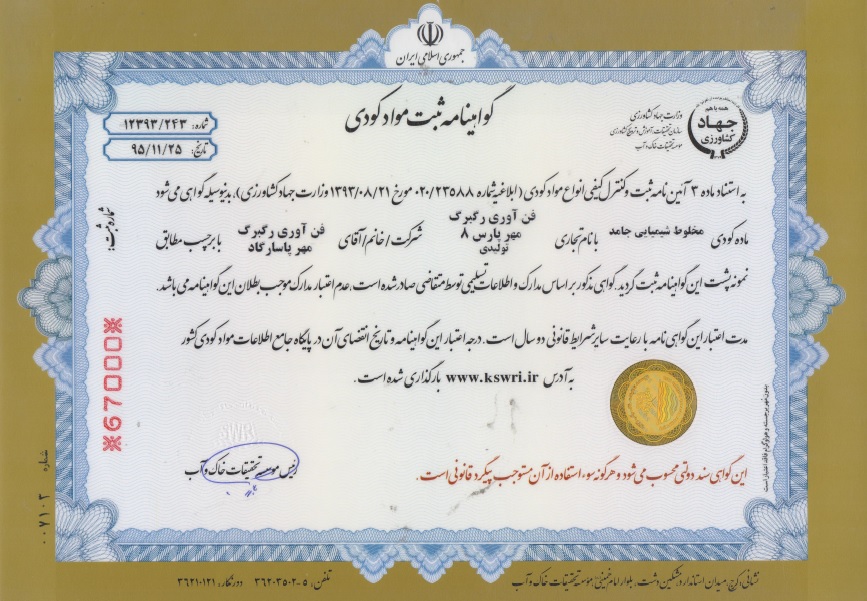 جمهوری اسلامی ایران
همه با هم
جهاد
کشاورزی
وزارت جهاد کشاورزی
سازمان تحقیقات، آموزش و ترویج کشاورزی
موسسه تحقیقات خاک و آب
گواهینامه ثبت مواد کودی
شماره: ۱۲۳۹۳/۲۴۳
تاریخ: ۹۵/۱۱/۲۵
به استناد ماده ۳ آئین نامه ثبت و کنترل کیفی انواع مواد کودی (ابلاغیه شماره ۰۲۰/۲۳۵۸۸ مورخ ۱۳۹۳/۰۸/۲۱ وزارت جهاد کشاورزی)، بدینوسیله گواهی می شود
ماده کودی مخلوط شیمیایی جامد با نام تجاری فن آوری رگبرگ مهر پارس ۸ تولیدی شرکت/خانم/آقای فن آوری رگبرگ مهر پاسارگاد با برچسب مطابق
نمونه پشت این گواهینامه ثبت گردید. گواهی مذکور بر اساس مدارک و اطلاعات تسلیمی توسط متقاضی صادر شده است، عدم اعتبار مدارک موجب بطلان این گواهینامه می باشد.
مدت اعتبار این گواهی نامه با رعایت سایر شرایط قانونی دو سال است. درجه اعتبار این گواهینامه و تاریخ انقضای آن در پایگاه جامع اطلاعات مواد کودی کشور
به آدرس www.kswri.ir بارگذاری شده است.
این گواهی سند دولتی محسوب می شود و هرگونه سوء استفاده از آن مستوجب پیگرد قانونی است.
رئیس موسسه تحقیقات خاک و آب
بدون مهر برجسته و هولوگرام فاقد اعتبار است
شماره ثبت:
※67000※
شماره ۰۰۷۱۰۳
نشانی: کرج، میدان استاندارد، مشکین دشت، بلوار امام خمینی، موسسه تحقیقات خاک و آب
تلفن: ۵-۳۶۲۰۳۵۰۲ دورنگار: ۳۶۲۱۰۱۲۱